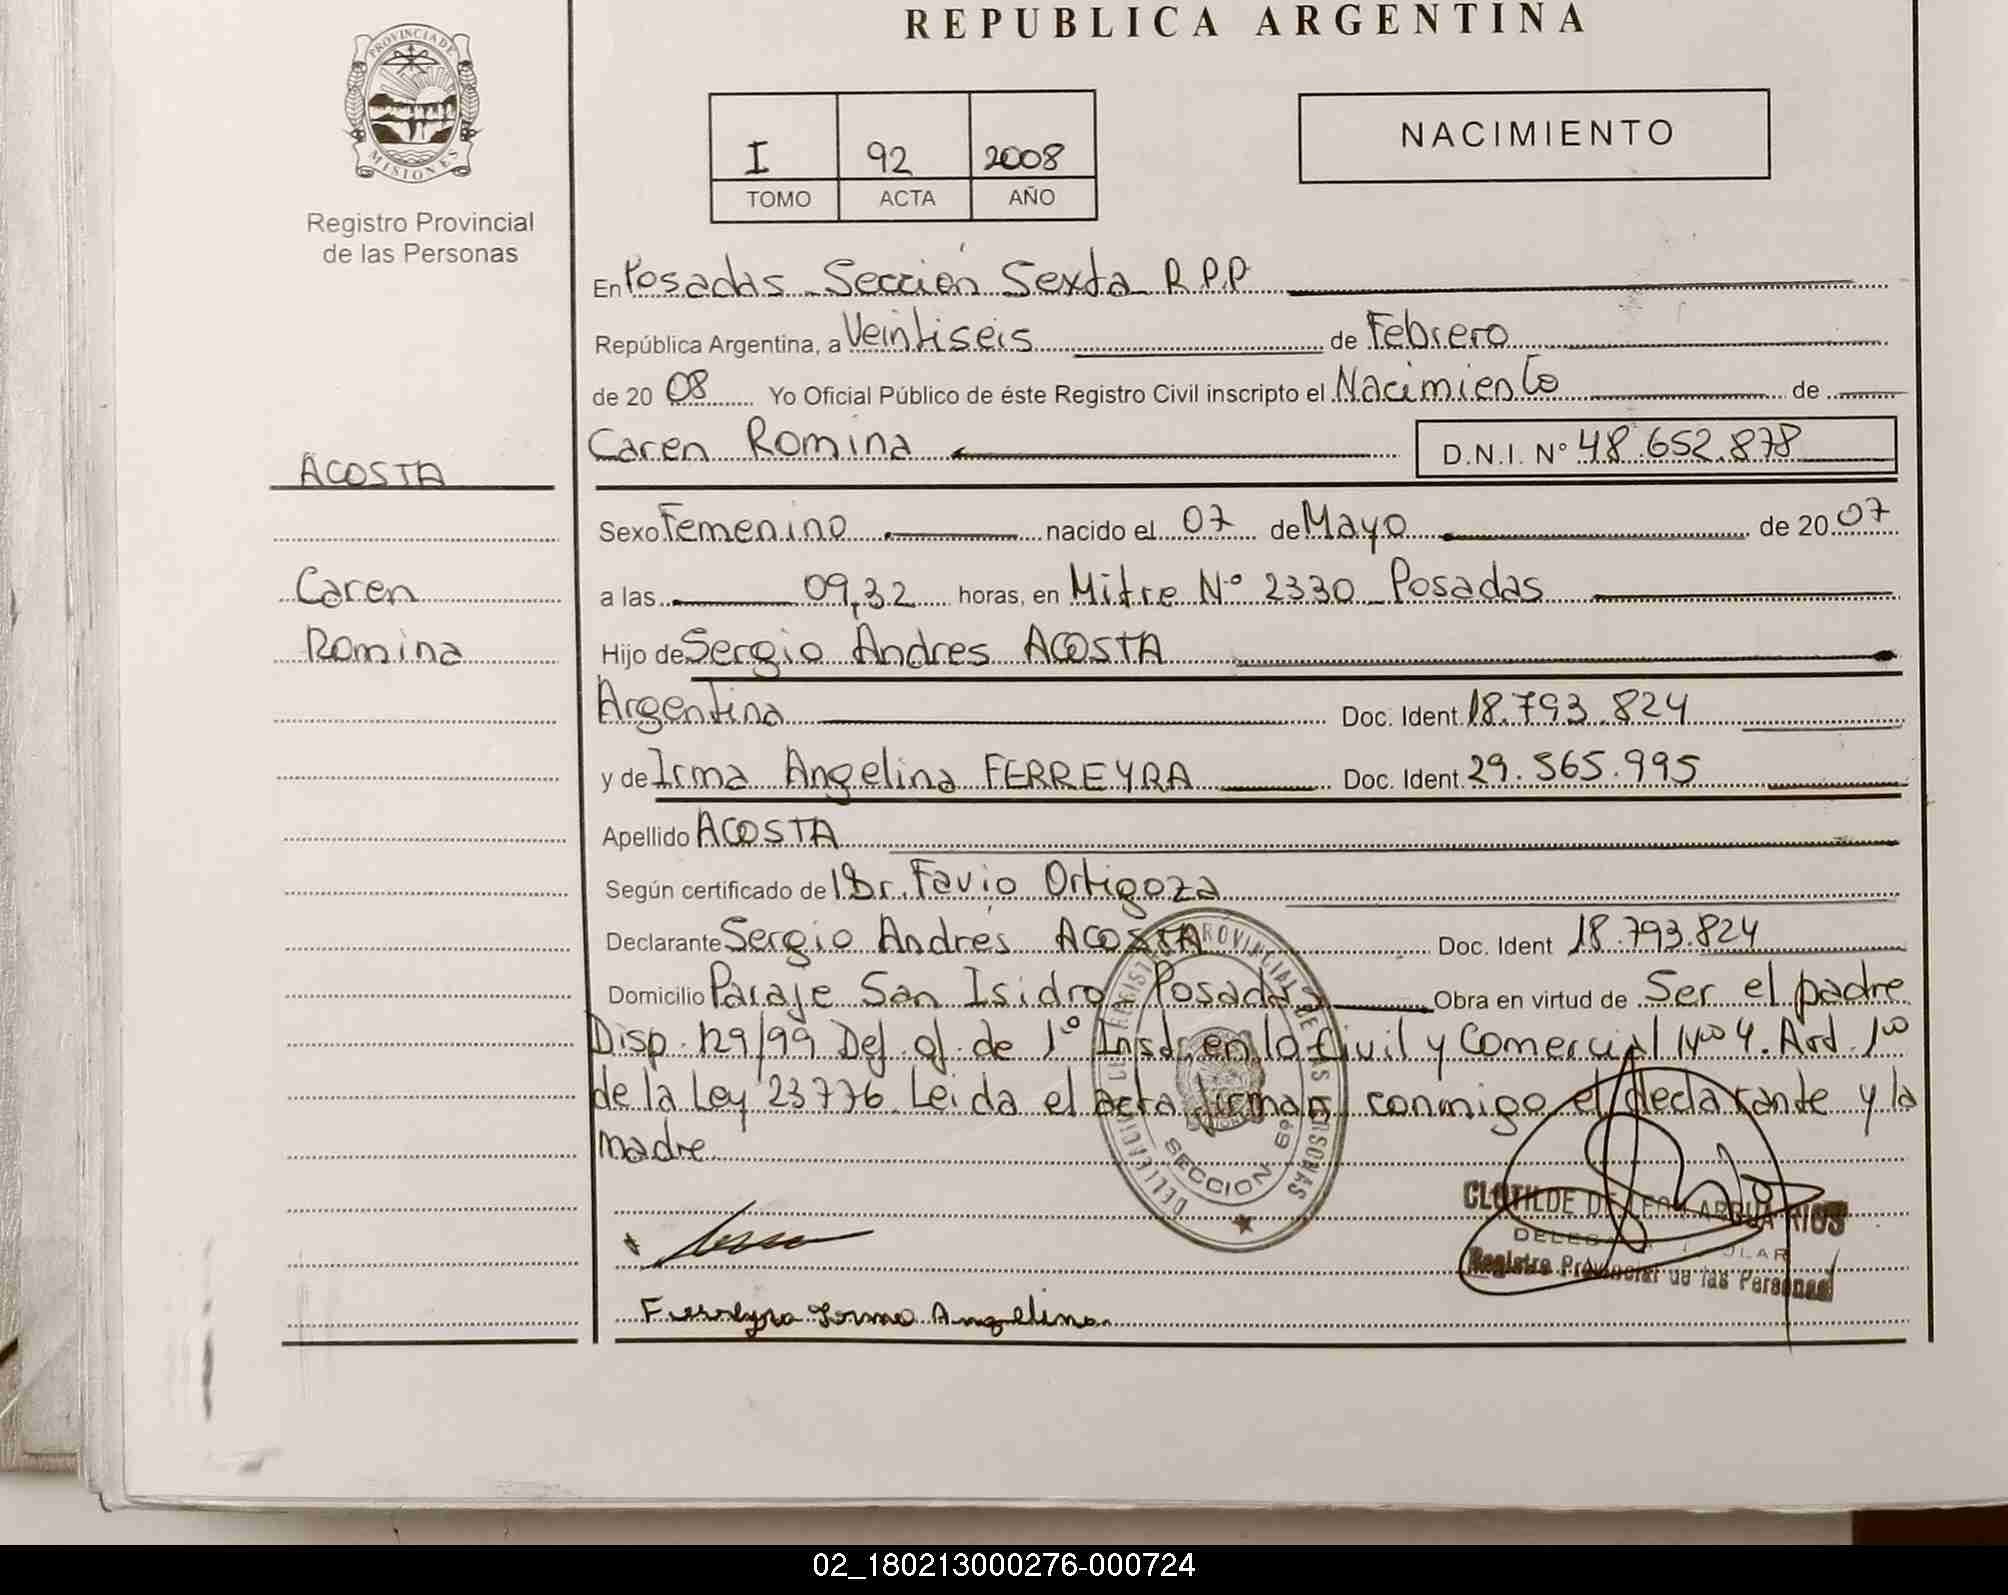 REPUBLICA ARGENTINA
PROVINCIA DE
MISIONES
Registro Provincial
de las Personas
I 92 2008
TOMO ACTA AÑO
NACIMIENTO
En Posadas Sección Sexta R.P.P
República Argentina, a Veintiseis de Febrero
de 20 08 Yo Oficial Público de éste Registro Civil inscripto el Nacimiento de
Caren Romina D.N.I. Nº 48.652.878
ACOSTA
Sexo Femenino nacido el 07 de Mayo de 20 07
Caren
a las 09,32 horas, en Mitre Nº 2330 Posadas
Romina
Hijo de Sergio Andres ACOSTA
Argentina Doc. Ident. 18.793.824
y de Irma Angelina FERREYRA Doc. Ident. 29.565.995
Apellido ACOSTA
Según certificado de Dr. Favio Ortigoza
Declarante Sergio Andrés ACOSTA Doc. Ident 18.793.824
Domicilio Paraje San Isidro Posadas Obra en virtud de Ser el padre
Disp. 129/99 Def. of. de 1º Inst. en lo Civil y Comercial Nº 4. Art. 1º
de la Ley 23776. Leida el acta firman conmigo el declarante y la
madre
SECCION 6º
CLOTILDE DE RIOS
Registro Provincial de las Personas
Ferreyra Irma Angelina
02_180213000276-000724